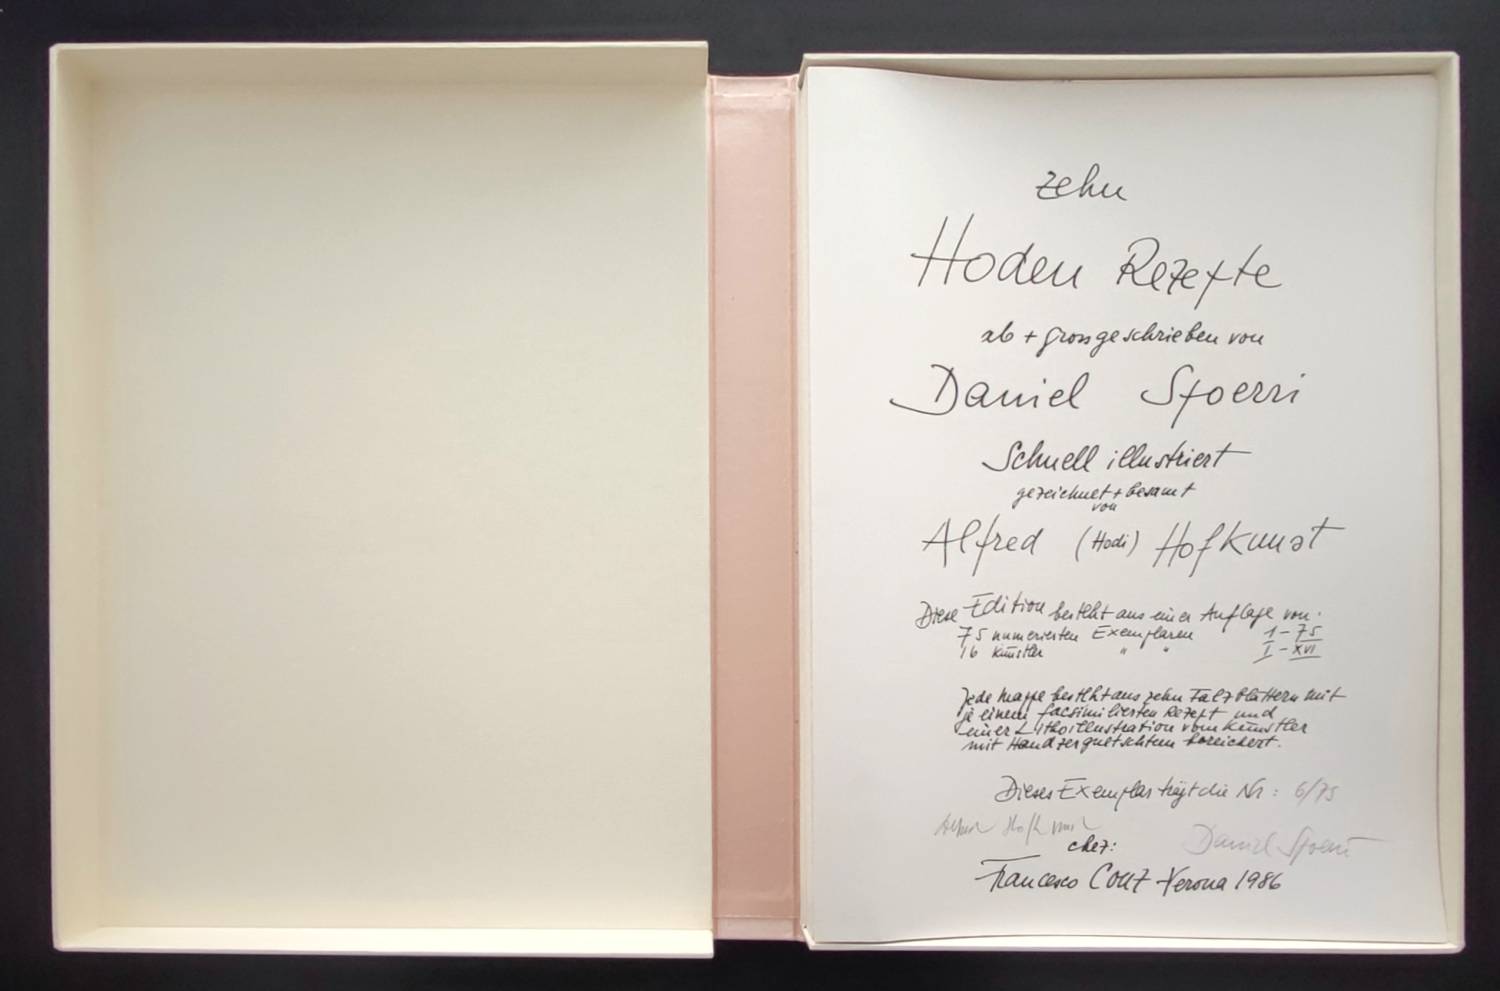 zehn
Hoden Rezepte
ab + grossgeschrieben von
Daniel Spoerri
Schnell illustriert
gezeichnet + besamt
von
Alfred (Hodi) Hofkunst
Diese Edition besteht aus einer Auflage von:
75 numerierten Exemplaren 1-75
16 Künstler " " I-XVI
Jede Mappe besteht aus zehn Falzblättern mit
je einem facsimilierten Rezept und
einer Lithoillustration vom Künstler
mit Handzerquetschtem bereichert.
Dieses Exemplar trägt die Nr: 6/75
Alfred Hofkunst
Daniel Spoerri
chez:
Francesco Conz Verona 1986